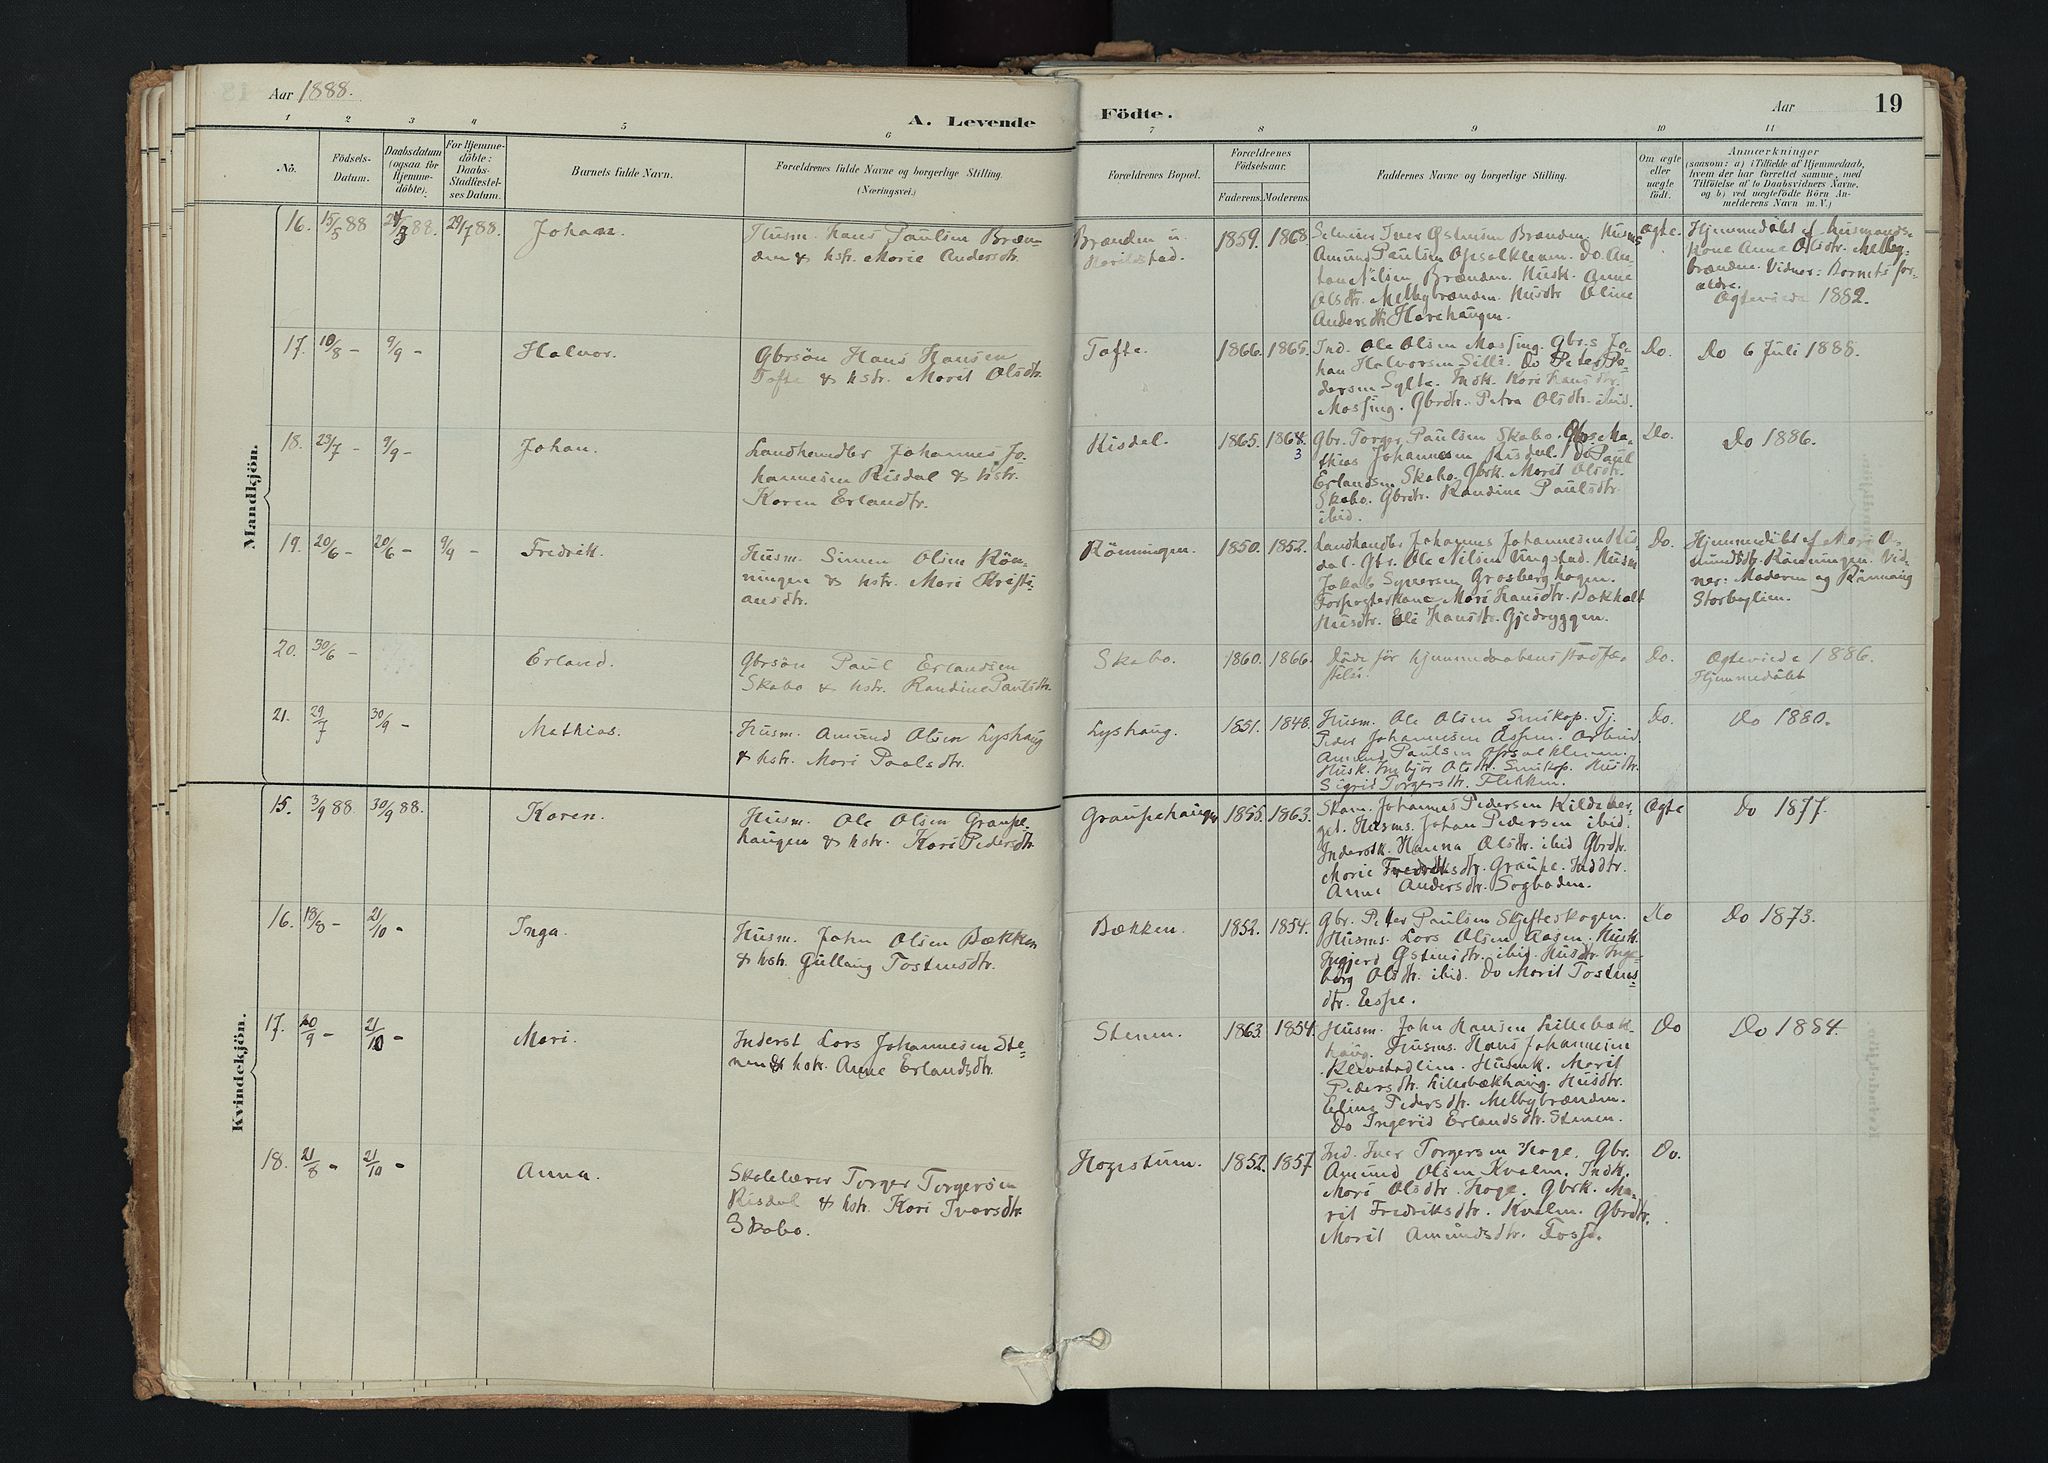 Aar 1888.
A. Levende
Födte.
Aar
19
1 2 3 4 5 6 7 8 9 10 11
No.
Födsels-
Datum.
Daabsdatum
(ogsaa for
Hjemme-
döbte).
For Hjemme-
döbte:
Daabs-
Stadfæstel-
ses Datum.
Barnets fulde Navn.
Forældrenes fulde Navne og borgerlige Stilling.
(Næringsvei.)
Forældrenes Bopæl.
Forældrenes
Födselsaar.
Faderens. Moderens.
Faddernes Navne og borgerlige Stilling.
Om ægte
eller
uægte
födt.
Anmærkninger
(saasom: a) i Tilfælde af Hjemmedaab,
hvem der har forrettet samme, med
Tilföielse af to Daabsvidners Navne,
og b) ved uægtefödte Börn An-
melderens Navn m. V.)
Mandkjön.
16. 15/5 88 88. 29/7 88. Johan.
Husm. Hans Paulsen Bræn-
den & hstr. Marie Andersdtr.
Brænden u.
Harildstad.
1859. 1868
Iver Østensen Brænden. Husms
Amund Paulsen
Brænden. Husk. Anne
Olsdtr. Melbybrænden. Husdtr Oline
Andersdtr Harehaugen.
Ægte.
Hjemmedöbt af Husmands-
kone Anne Olsdtr. Melby-
brænden. Vidner: Barnets for-
ældre.
Ægteviede 1882.
17. 10/8 - 9/9 - Halvor.
Gbrsön Hans Hansen
Tofte & hstr. Marit Olsdtr.
Tofte.
1866. 1865.
Ind. Ole Olsen Massing. Gbr.s Jo-
han Halvorsen Sille. Do Peter Pe-
dersen Sylte. Indk. Kari Hansdtr.
Massing. Gbrdtr. Petra Olsdtr. ibid.
Do.
Do 6 Juli 1888.
18. 23/7 - 9/9 - Johan.
Landhandler Johannes Jo-
hannesen Risdal & hstr.
Karen Erlandtr.
Risdal.
1865. 1868.
3
Gbr. Torger Paulsen Skabo. Gbrs Ma-
thias Johannesen Risdal. Do Paul
Erlandsen Skabo. Gbrk. Marit Olsdtr.
Skabo. Gbrdtr. Randine Paulsdtr.
ibid.
Do.
Do 1886.
19. 20/6 - 20/6 - 9/9 - Fredrik.
Husm. Simen Olsen Rön-
ningen & hstr. Mari Kristi-
ansdtr.
Rönningen.
1850. 1852.
Landhandler Johannes Johannesen Ris-
dal. Gbr. Ole Nilsen Ringstad. Husm
Jakob Syversen Grosberghagen.
Forpagterkone Mari Hansdtr. Bakhalt
Husdtr. Eli Hansdtr. Gjedryggen.
Do.
Hjemmedöbt af Mari A-
mundsdtr. Rönningen. Vid-
ner: Moderen og Rönnaug
Storbeglien.
20. 30/6 - Erland.
Gbrsön Paul Erlandsen
Skabo & hstr. Randine Paulsdtr.
Skabo.
1860. 1866.
Döde för hjemmedaabens stadfæ-
stelse.
Do.
Ægteviede 1886.
Hjemmedöbt
21. 29/7 30/9 - Mathias.
Husm. Amund Olsen Lyshaug
& hstr. Mari Paalsdtr.
Lyshaug.
1851. 1848.
Husm. Ole Olsen Smikop. Tj.
Peder Johannesen Aspen. Arbeid.
Amund Paulsen
Husk. Ingbjör Olsdtr. Smikop. Husdtr.
Sigrid Torgersdtr. Flekken.
Do.
Do 1880.
Kvindekjön.
15. 3/9 88 30/9 88. Karen.
Husm. Ole Olsen Graupe-
haugen & hstr. Kari Pedersdtr.
Graupehaugen
1855. 1863.
Skom. Johannes Pedersen Kildeber-
get. Husms. Johan Pedersen ibid.
Inderstk. Hanna Olsdtr. ibid Gbrdtr.
Marie Fredriksdtr. Graupe. Inddtr.
Anne Andersdtr. Sogbaden.
Ægte
Do 1877.
16. 18/8 - 21/10 - Inga.
Husm. John Olsen Bækken
& hstr. Gullaug Tostensdtr.
Bækken.
1852. 1854.
Gbr. Peter Paulsen Skjefteskogen.
Husms. Lars Olsen Aasen. Husk.
Ingjerd Østensdtr. ibid. Husdtr. Inge-
borg Olsdtr. ibid. Do Marit Tostens-
dtr. Espe.
Do
Do 1873.
17. 20/9 - 21/10 - Mari.
Inderst Lars Johannesen Ste-
nen & hstr. Anne Erlandsdtr.
Stenen.
1863. 1854.
Husm. John Hansen Lillebæk-
haug. Husms. Hans Johannesen
Klevstadlien. Husmk. Marit
Pedersdtr. Lillebækhaug. Husdtr.
Eline Pedersdtr. Melbybrænden.
Do Ingerid Erlandsdtr. Stenen.
Do
Do 1884.
18. 21/8 - 21/10 - Anna.
Skolelærer Torger Torgersen
Risdal & hstr. Kari Ivarsdtr.
Skabo.
Hogestuen.
1852. 1857
Ind. Iver Torgersen Hoge. Gbr.
Amund Olsen Kvalen. Indk.
Mari Olsdtr. Hoge. Gbrk. Ma-
rit Fredriksdtr. Kvalen. Gbrdtr.
Marit Amundsdtr. Fosse.
Do.